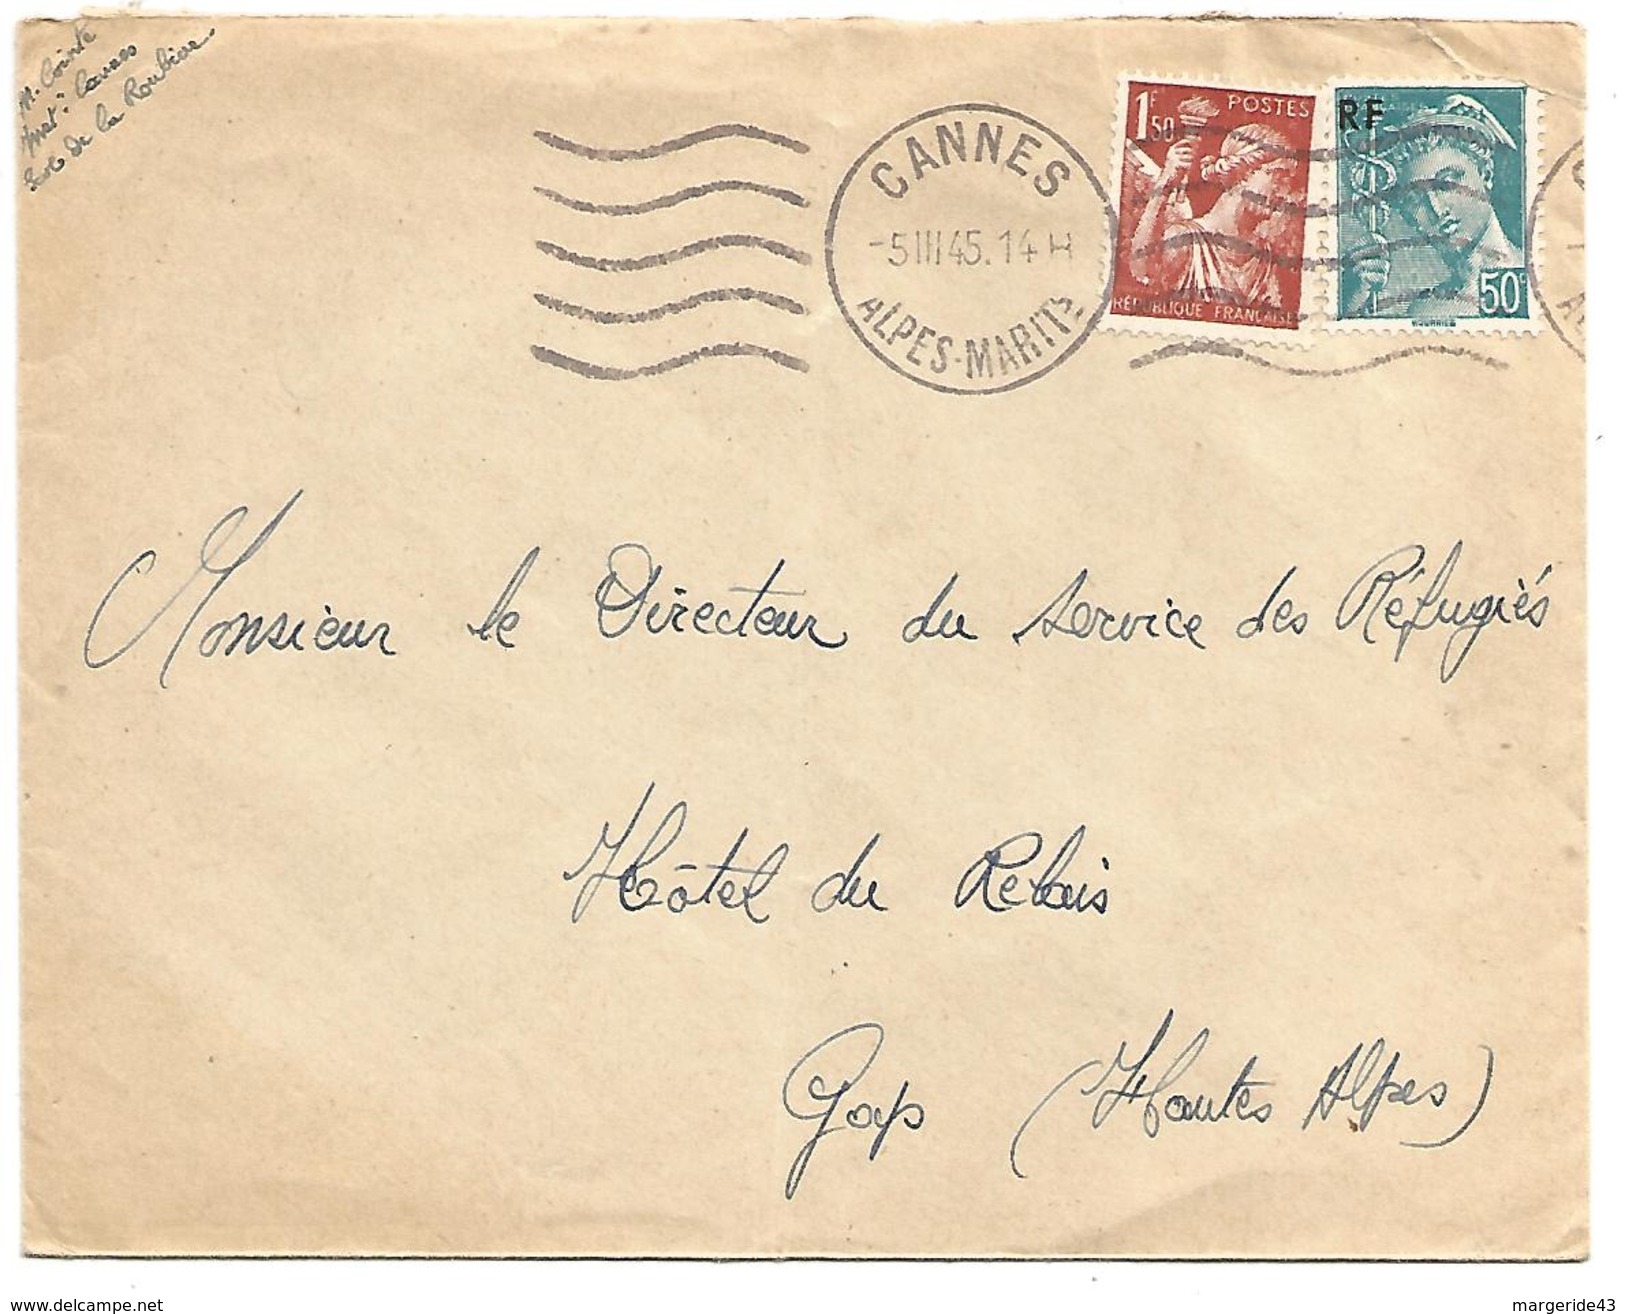 M. Cointe
Inst: Cannes
de la Roubine
CANNES
-5 III 45. 14 H
ALPES-MARITES
1F50
POSTES
RÉPUBLIQUE FRANÇAISE
RF
50c
Monsieur le Directeur du service des Réfugiés
Hôtel du Relais
Gap (Hautes Alpes)
www.delcampe.net
margeride43